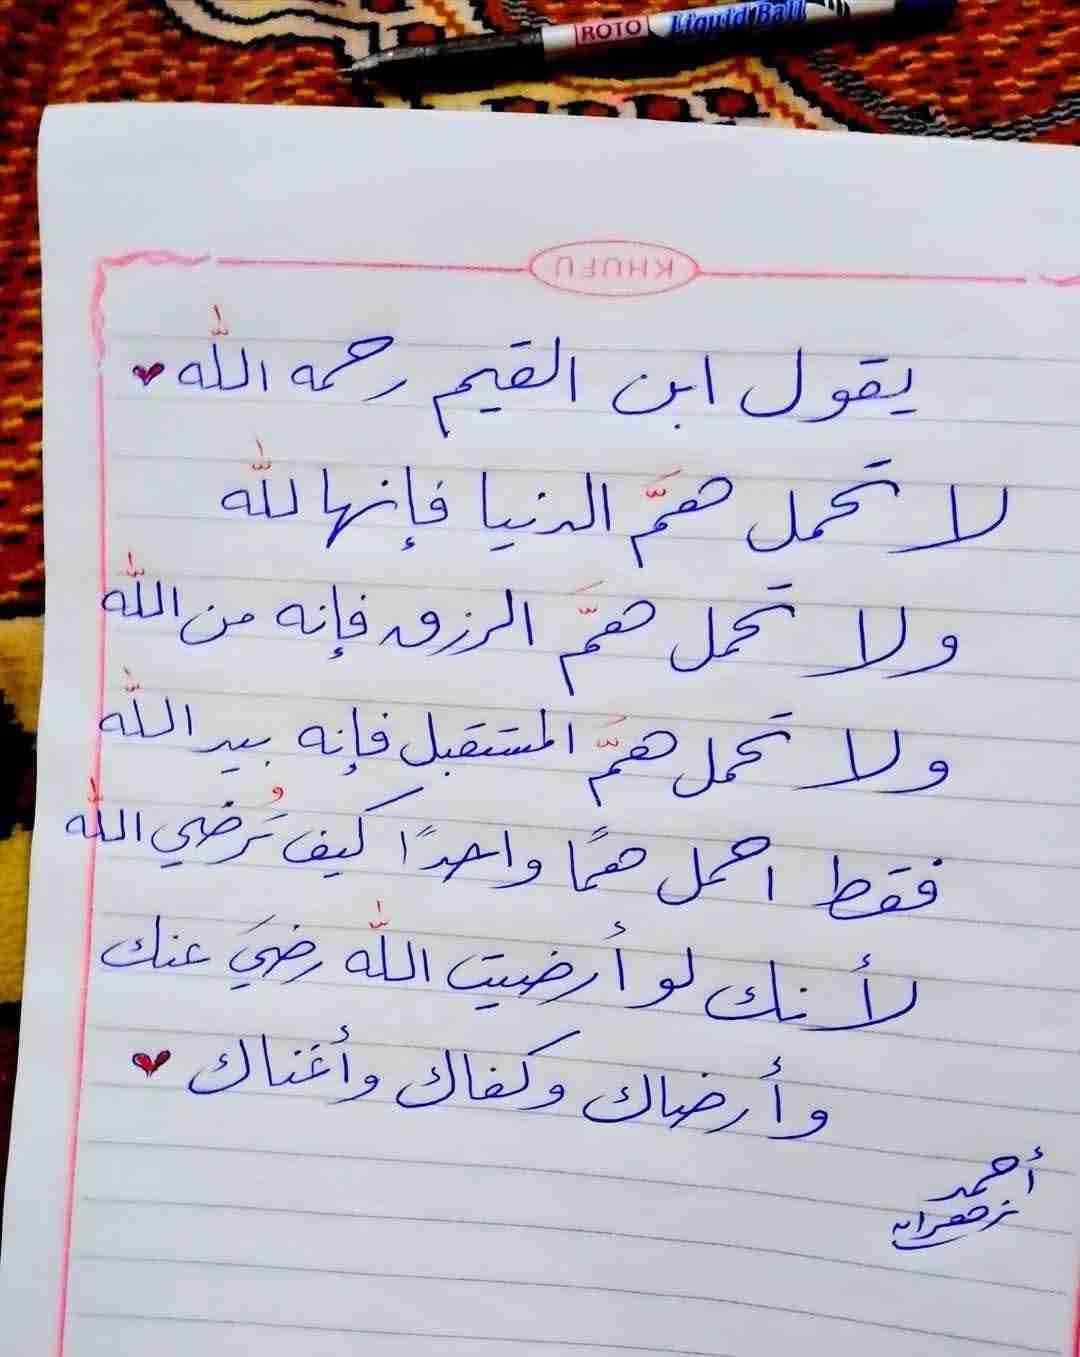 ROTO Liquid Ball
KHUFU
يقول ابن القيم رحمه الله
لا تحمل همَّ الدنيا فإنها لله
ولا تحمل همَّ الرزق فإنه من الله
ولا تحمل همَّ المستقبل فإنه بيد الله
فقط احمل همًا واحدًا كيف تُرضي الله
لأنك لو أرضيت الله رضيَ عنك
وأرضاك وكفاك وأغناك
أحمد
زهران